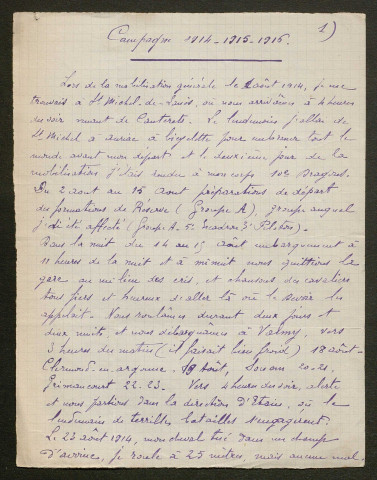 1)
Campagne 1914-1915-1916.
Lors de la mobilisation générale le 2 août 1914, je me
trouvais à St Michel-de-Lanès, où nous arrivâmes à 4 heures
du soir venant de Cauterets. Le lendemain j'allai de
St Michel à Auriac à bicyclette pour embrasser tout le
monde avant mon départ et le deuxième jour de la
mobilisation j'étais rendu à mon corps 10e Dragons.
Du 2 aout au 15 aout préparations de départ
des formations de Réserve (Groupe A), groupe auquel
j'ai été affecté (Groupe A. 5e Escadron 3e Peloton).
Dans la nuit du 14 au 15 août embarquement à
11 heures de la nuit et à minuit nous quittions la
gare au milieu des cris, et chansons des cavaliers
tous fiers et heureux d'aller là où le devoir les
appelait. Nous roulâmes durant deux jours et
deux nuits, et nous débarquâmes à Valmy, vers
3 heures du matin (il faisait bien froid) 18 août -
Clermont-en-argonne. 19 Août, 20-21.
22-23. Vers 4 heures du soir, alerte
et nous partions dans la direction d'Etain, où le
lendemain de terribles batailles s'engagèrent.
Le 24 août 1914, mon cheval tué dans un champ
d'avoine, je roule à 25 mètres, mais aucun mal.